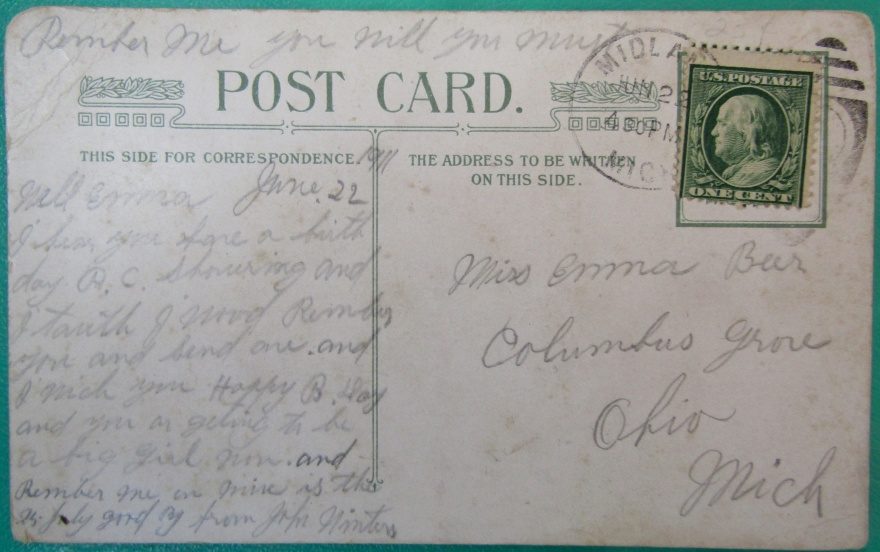 Rember Me you will you must
POST CARD.
MIDLAND
JUN 22
4 30PM
MICH
U.S. POSTAGE
ONE CENT
THIS SIDE FOR CORRESPONDENCE.
THE ADDRESS TO BE WRITTEN
ON THIS SIDE.
1911
June. 22
Well Emma
I hear you are a birth
day P. C. Showering and
I I Wood Rember
you and send one. and
I Wich you Happy B. Day
and you ar geting to be
a big Girl Now. and
Rember Me on Mine is the
July good By from John Winters
Miss Emma Beer
Columbus Grove
Ohio
Mich